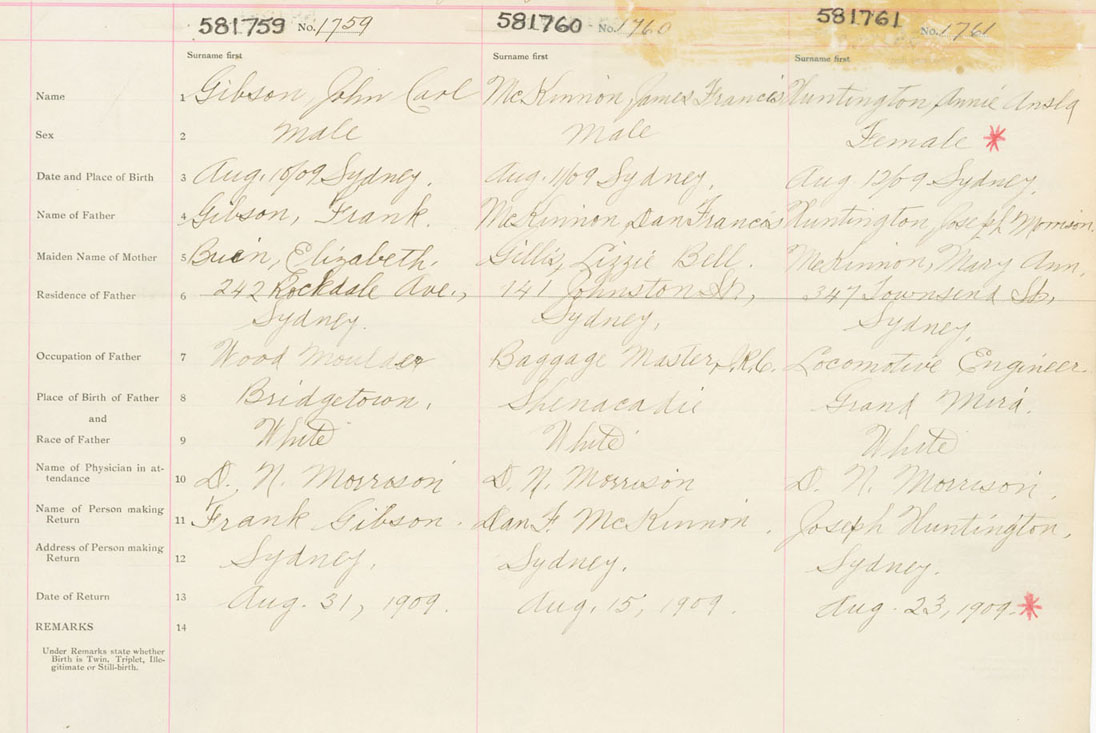 581759 No. 1759 581760 No. 1760 581761 No. 1761
Surname first Surname first Surname first
Name 1 Gibson, John Carl McKinnon, James Francis Huntington, Annie
Sex 2 male Male Female *
Date and Place of Birth 3 Aug. 10/09 Sydney. Aug. 11/09 Sydney, Aug 12/09 Sydney,
Name of Father 4 Gibson, Frank. McKinnon, Dan Francis Huntington, Joseph Morrison.
Maiden Name of Mother 5 Elizabeth. Gillis, Lizzie Bell. McKinnon, Mary Ann,
Residence of Father 6 242 Rockdale Ave., 141 Johnston St, 347 Townsend St,
Sydney. Sydney, Sydney,
Occupation of Father 7 Wood Moulder Baggage Master, Locomotive Engineer
Place of Birth of Father 8 Bridgetown. Shenacadie Grand Mira.
and
Race of Father 9 White White White
Name of Physician in at-
tendance 10 D. N. Morrison D. N. Morrison D. N. Morrison.
Name of Person making
Return 11 Frank Gibson. Dan F. McKinnon. Joseph Huntington.
Address of Person making
Return 12 Sydney. Sydney. Sydney.
Date of Return 13 Aug. 31, 1909. Aug. 15, 1909. Aug. 23, 1909. *
REMARKS 14
Under Remarks state whether
Birth is Twin, Triplet, Ille-
gitimate or Still-birth.